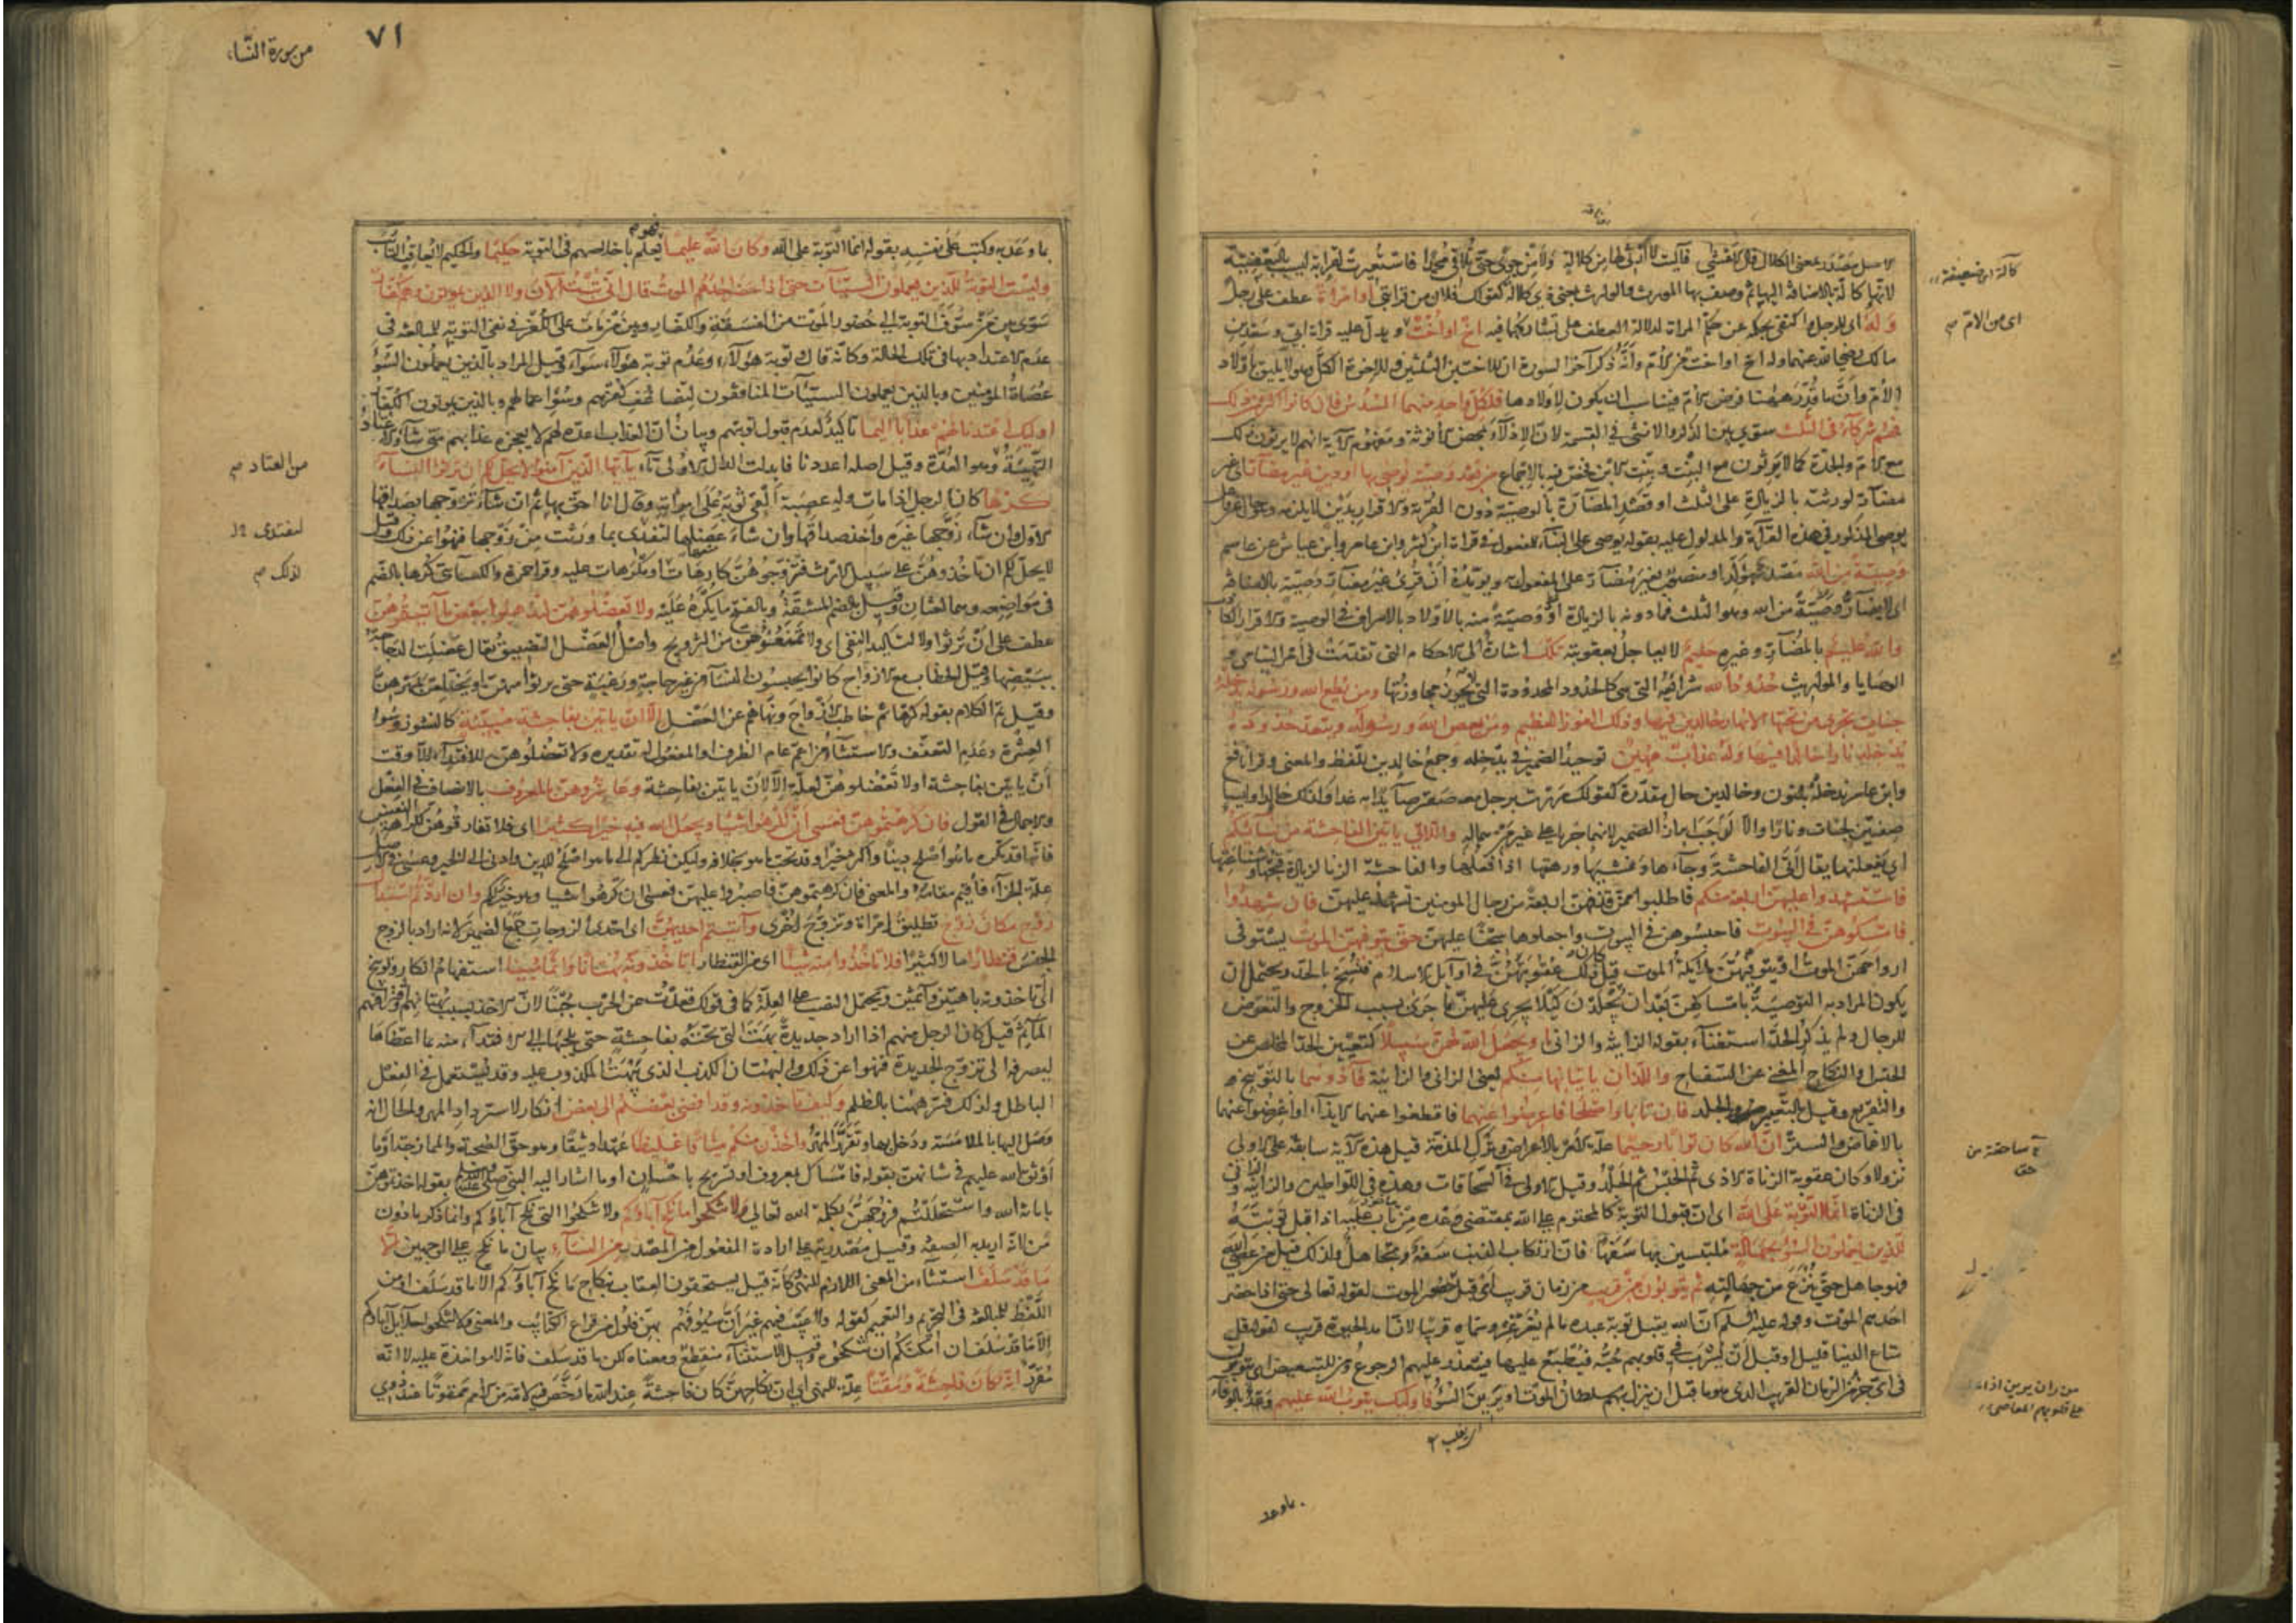 الاصل مصدر بمعنى الكلال قال الاعشى فآليت لا ارثى لها من كلالة ولا من وجى حتى تلاقي محمدا فاستعيرت لقرابة ليست بالبعضية
لانها كالة بالاضافة اليها ثم وصف بها المورث والوارث بمعنى ذي كلالة كقولك فلان من قرابتي او امرأة عطف على رجل
وله اى للرجل واكتفى بحكمه عن حكم المراة لدلالة العطف على تشاركهما فيه اخ او اخت ويدل عليه قراة ابي وسعد بن
مالك رضي الله عنهما وله اخ او اخت من الام وأنه ذكر آخر السورة ان للاختين الثلثين وللاخوة الكل وهو لا يليق باولاد
الام وأن ما قدر ههنا فرض الام فيناسب ان يكون لاولادها فلكل واحد منهما السدس فان كانوا اكثر من ذلك
فهم شركآء في الثلث سوى بين الذكر والانثى في القسمة لان الادلآء بمحض الانوثة ومفهوم الآية انهم لا يرثون ذلك
مع الام والجدة كما لا يرثون مع البنت وبنت الابن فخص فيه بالاجماع من بعد وصية يوصى بها او دين غير مضآر اى غير
مضآر لورثته بالزيادة على الثلث او قصد المضآرة بالوصية دون القربة والاقرار بدين لا يلزمه وهو حال من فاعل
يوصى المذكور في هذه القرآة والمدلول عليه بقوله يوصى على البنآء للمفعول في قراة ابن كثير وابن عامر وابن عياش عن عاصم
وصية من الله مصدر مؤكد او منصوب بغير مضآر على المفعول به ويؤيده أنه قرئ غير مضآر وصية بالاضافة
اى لا يضار وصية من الله وهو الثلث فما دونه بالزيادة او وصية منه بالاولاد بالاسراف في الوصية والاقرار الكاذب
والله عليم بالمضآر وغيره حليم لا يعاجل بعقوبته تلك اشارة الى الاحكام التى تقدمت في امر اليتامى و
الوصايا والمواريث حدود الله شرائعه التى هي كالحدود المحدودة التى لا يجوز مجاوزتها ومن يطع الله ورسوله يدخله
جنات تجري من تحتها الانهار خالدين فيها وذلك الفوز العظيم ومن يعص الله ورسوله ويتعد حدوده
يدخله نارا خالدا فيها وله عذاب مهين توحيد الضمير في يدخله وجمع خالدين للفظ والمعنى وقرأ نافع
وابن عامر ندخله بالنون وخالدين حال مقدرة كقولك مررت برجل معه صقر صآيدا به غدا وكذلك خالدا وليسا
صفتين لجنات ونارا والا لوجب ابراز الضمير لانهما جريا على غير من هما له واللاتي ياتين الفاحشة من نسآئكم
اى يفعلنها يقال أتى الفاحشة وجآءها وغشيها ورهقها اذا فعلها والفاحشة الزنا لزيادة قبحها وشناعتها
فاستشهدوا عليهن اربعة منكم فاطلبوا ممن قذفهن اربعة من رجال المومنين تشهد عليهن فان شهدوا
فامسكوهن في البيوت فاحبسوهن في البيوت واجعلوها سجنا عليهن حتى يتوفهن الموت يستوفى
ارواحهن الموت او يتوفيهن ملايكة الموت قيل كان ذلك عقوبتهن في اوآيل الاسلام فنسخ بالحد ويحتمل ان
يكون المراد به التوصية بامساكهن بعد ان يجلدن كيلا يجري عليهن ما جرى بسبب الخروج والتعرض
للرجال ولم يذكر الحد استغنآء بقوله الزانية والزانى او يجعل الله لهن سبيلا كتعيين الحد المخلص عن
الحبس والنكاح المغنى عن السفاح واللذان ياتيانها منكم يعنى الزانى والزانية فآذوهما بالتوبيخ
والتقريع وقيل بالتعيير والجلد فان تابا واصلحا فاعرضوا عنهما فاقطعوا عنهما الايذآء او اعرضوا عنهما
بالاغماض والستر ان الله كان توابا رحيما علة الامر بالاعراض وترك المذمة قيل هذه الآية سابقة على الاولى
نزولا وكان عقوبة الزناة الاذى ثم الحبس ثم الجلد وقيل الاولى في السحاقات وهذه في اللواطين والزانية والزانى
في الزناة انما التوبة على الله اى ان قبول التوبة كالمحتوم على الله بمقتضى وعده من تاب عليه اذا قبل توبته
للذين يعملون السوء بجهالة ملتبسين بها سفها فان ارتكاب الذنب سفه وتجاهل ولذلك قيل من عصى الله
فهو جاهل حتى ينزع من جهالته ثم يتوبون من قريب من زمان قريب اى قبل حضور الموت لقوله تعالى حتى اذا حضر
احدهم الموت وقوله عليه السلم ان الله يقبل توبة عبده ما لم يغرغر وسماه قريبا لان امد الحيوة قريب لقوله قل
متاع الدنيا قليل او قبل أن يشرب في قلوبهم حبه فيطبع عليها فيتعذر عليهم الرجوع ومن للتبعيض اى يتوبون
في اي جزء من الزمان القريب الذى هو ما قبل ان ينزل بهم سلطان الموت او يزين السوء فاوليك يتوب الله عليهم وعد بالوفآء
كآلة اى ضعيفة
اى من الام
من ران يرين اذا
على قلوبهم المعاصي
ما وعد
٧١
من سورة النسآء
ما وعد به وكتب على نفسه بقوله انما التوبة على الله وكان الله عليما فهو يعلم باخلاصهم في التوبة حكيما والحكيم لا يعاقب التآئب
وليست التوبة للذين يعملون السيآت حتى اذا حضر احدهم الموت قال انى تبت الآن ولا الذين يموتون وهم كفار
سوى بين من سوف التوبة الى حضور الموت من الفسقة والكفار وبين من مات على الكفر في نفى التوبة للمبالغة في
عدم الاعتداد بها في تلك الحالة وكأنه قال توبة هؤلآء وعدم توبة هؤلآء سوآء وقيل المراد بالذين يعملون السوء
عصاة المؤمنين وبالذين يعملون السيئات المنافقون لتضاعف كفرهم وسوء اعمالهم وبالذين يموتون الكفار
اوليك اعتدنا لهم عذابا اليما تاكيد لعدم قبول توبتهم وبيان ان العذاب اعده لهم لا يعجزه عذابهم متى شآء والاعتاد
التهيئة وهو العدة وقيل اصله اعددنا فابدلت الدال الاولى تآء يآ ايها الذين آمنوا لا يحل لكم ان ترثوا النسآء
كرها كان الرجل اذا مات وله عصبة القى ثوبه على امراته وقال انا احق بها ثم ان شآء تزوجها بصداقها
الاول وان شآء زوجها غيره واخذ صداقها وان شاء عضلها لتفدى بما ورثت من زوجها فنهوا عن ذلك وقيل
لا يحل لكم ان تاخذوهن على سبيل الارث فتتزوجوهن كارهات او مكرهات عليه وقرا حمزة والكسآئى كرها بالضم
في مواضعه وهما لغتان وقيل بالضم المشقة وبالفتح ما يكره عليه ولا تعضلوهن لتذهبوا ببعض مآ آتيتموهن
عطف على ان ترثوا ولا لتاكيد النفى اى ولا تمنعوهن من التزويج واصل العضل التضييق يقال عضلت الدجاجة
ببيضها وقيل الخطاب مع الازواج كانوا يحبسون النسآء من غير حاجة ورغبة حتى يرثوا منهن او يختلعن بمهرهن
وقيل تم الكلام بقوله كرها ثم خاطب الازواج ونهاهم عن العضل الا ان ياتين بفاحشة مبينة كالنشوز وسوء
العشرة وعدم التعفف والاستثنآء من اعم عام الظرف او المفعول له تقديره ولا تعضلوهن للافتدآء الا وقت
أن ياتين بفاحشة او لا تعضلوهن لعلة الا لان ياتين بفاحشة وعاشروهن بالمعروف بالانصاف في الفعل
والاجمال في القول فان كرهتموهن فعسى أن تكرهوا شيئا ويجعل الله فيه خيرا كثيرا اى فلا تفارقوهن لكراهة النفس
فانها قد تكره ما هو اصلح دينا واكثر خيرا وقد تحب ما هو بخلافه وليكن نظركم الى ما هو اصلح للدين وادنى الى الخير وعسى في الاصل
علة الجزآء فأقيم مقامه والمعنى فان كرهتموهن فاصبروا عليهن فعسى ان تكرهوا شيا وهو خير لكم وان اردتم استبدال
زوج مكان زوج تطليق امراة وتزوج اخرى وآتيتم احديهن اى احدى الزوجات جمع الضمير لانه اراد بالزوج
الجنس قنطارا مالا كثيرا فلا تاخذوا منه شيئا اى من القنطار اتاخذونه بهتانا واثما مبينا استفهام انكار وتوبيخ
اى تاخذونه باهتين وآثمين ويحتمل النصب على العلة كما في قولك قعدت عن الحرب جبنا لان الاخذ بسبب بهتانهم واقترافهم
المآثم قيل كان الرجل منهم اذا اراد جديدة بهت التى تحته بفاحشة حتى يلجئها الى الافتدآء منه بما اعطاها
ليصرفه الى تزوج الجديدة فنهوا عن ذلك والبهتان الكذب الذى يبهت المكذوب عليه وقد يستعمل في الفعل
الباطل ولذلك فسر ههنا بالظلم وكيف تاخذونه وقد افضى بعضكم الى بعض انكار لاسترداد المهر والحال انه
وصل اليها بالملامسة ودخل بها وتقرر المهر واخذن منكم ميثاقا غليظا عهدا وثيقا وهو حق الصحبة والممازجة او ما
أوثق الله عليهم في شانهن بقوله فامساك بمعروف او تسريح باحسان او ما اشار اليه النبي صلى الله عليه وسلم بقوله اخذتموهن
بامانة الله واستحللتم فروجهن بكلمة الله تعالى ولا تنكحوا ما نكح آباؤكم ولا تنكحوا التى نكح آباؤكم وانما ذكر ما دون
من لانه اريد به الصفة وقيل مصدرية على ارادة المفعول من المصدر من النسآء بيان ما نكح على الوجهين الا
ما قد سلف استثنآء من المعنى اللازم للنهى كأنه قيل يستحقون العقاب بنكاح ما نكح آباؤكم الا ما قد سلف او من
اللفظ للمبالغة في التحريم والتعميم كقوله ولا عيب فيهم غير أن سيوفهم بهن فلول من قراع الكتائب والمعنى ولا تنكحوا حلايل آبآئكم
الا ما قد سلف ان امكنكم ان تنكحوه وقيل الاستثنآء منقطع ومعناه لكن ما قد سلف فانه لا مواخذة عليه لا انه
مقرر انه كان فاحشة ومقتا علة للنهى اى ان نكاحهن كان فاحشة عند الله ما رخص فيه لامة من الامم ممقوتا عند ذوي
من العتاد
لتفتدى
لذلك